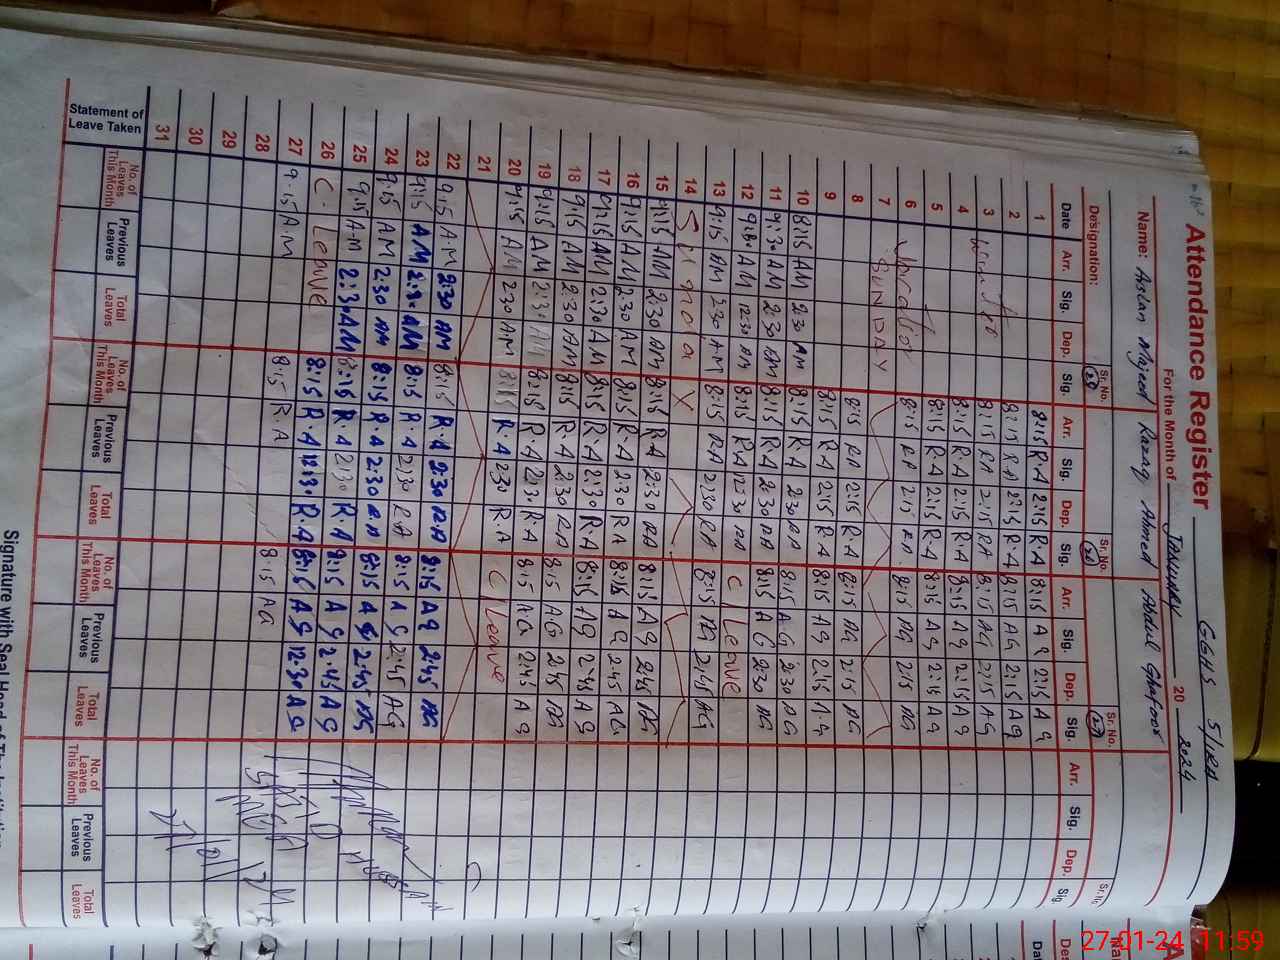 Attendance Register GGHS 5/1RA
For the Month of January 20 2024
Name: Aslan Majeed Razaq Ahmed Abdul Ghafoor
Designation: Sr. No. 25 Sr. No. 26 Sr. No. 27 Sr. No
Date Arr. Sig. Dep. Sig. Arr. Sig. Dep. Sig. Arr. Sig. Dep. Sig. Arr. Sig. Dep. Sig.
1 8:15 R.A 2:15 R.A 8:15 A G 2:15 A G
2 8:15 R.A 2:15 R.A 8:15 AG 2:15 AG
3 Winter 8:15 RA 2:15 RA 8:15 AG 2:15 AG
4 8:15 R.A 2:15 R.A 8:15 AG 2:15 AG
5 8:15 R.A 2:15 R.A 8:15 AG 2:15 AG
6 Vacation 8:15 RA 2:15 RA 8:15 AG 2:15 AG
7 SUNDAY
8 8:15 RA 2:15 R.A 8:15 AG 2:15 AG
9 8:15 R.A 2:15 R.A 8:15 AG 2:15 A.G
10 8:15 AM 2:30 AM 8:15 R.A 2:30 RA 8:15 AG 2:30 AG
11 9:30 AM 2:30 AM 8:15 R.A 2:30 RA 8:15 AG 2:30 AG
12 9:30 AM 12:30 AM 8:15 R.A 12:30 RA C/Leave
13 9:15 AM 2:30 AM 8:15 RA 2:30 RA 8:15 AG 2:45 AG
14
15 9:15 AM 2:30 AM 8:15 R.A 2:30 RA 8:15 AG 2:45 AG
16 9:15 AM 2:30 AM 8:15 R.A 2:30 RA 8:15 AG 2:45 AG
17 9:15 AM 2:30 AM 8:15 R.A 2:30 R.A 8:15 AG 2:45 AG
18 9:15 AM 2:30 AM 8:15 R.A 2:30 RA 8:15 AG 2:45 AG
19 9:15 AM 2:30 AM 8:15 R.A 2:30 R.A 8:15 AG 2:45 AG
20 9:15 AM 2:30 AM 8:15 R.A 2:30 R.A C/Leave
21
22 9:15 A.M 2:30 AM 8:15 R.A 2:30 R.A 8:15 AG 2:45 AG
23 9:15 AM 2:30 AM 8:15 R.A 2:30 RA 8:15 AG 2:45 AG
24 9:15 AM 2:30 AM 8:15 R.A 2:30 RA 8:15 AG 2:45 AG
25 9:15 AM 2:30 AM 8:15 R.A 2:30 R.A 8:15 AG 2:45 AG
26 C. Leave 8:15 R.A 12:30 R.A 8:15 AG 12:30 AG
27 9:15 A.M 8:15 R.A 8:15 AG
28
29
30
31
Statement of Leave Taken
No. of Leaves This Month Previous Leaves Total Leaves No. of Leaves This Month Previous Leaves Total Leaves No. of Leaves This Month Previous Leaves Total Leaves No. of Leaves This Month Previous Leaves Total Leaves
Signature with Seal Head of The Institution
27-01-24 11:59